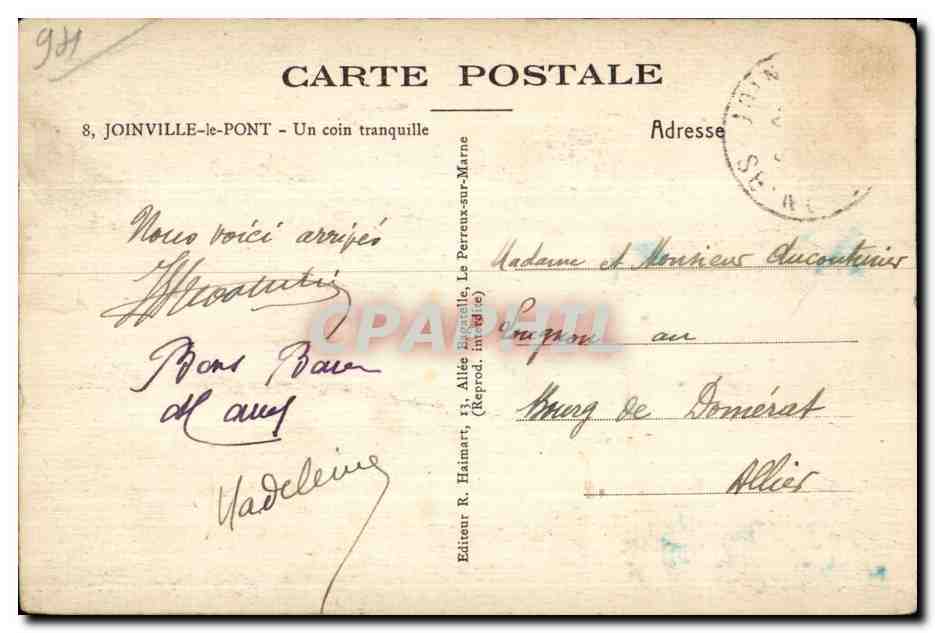 981
CARTE POSTALE
8, JOINVILLE-le-PONT - Un coin tranquille
Adresse
Nous voici arrivés
Bons Baisers
Madeleine
Editeur R. Haimart, 13, Allée Bagatelle, Le Perreux-sur-Marne
(Reprod. interdite)
Madame et Monsieur Ducouturier
au
Bourg de Domérat
Allier
CPAPHIL